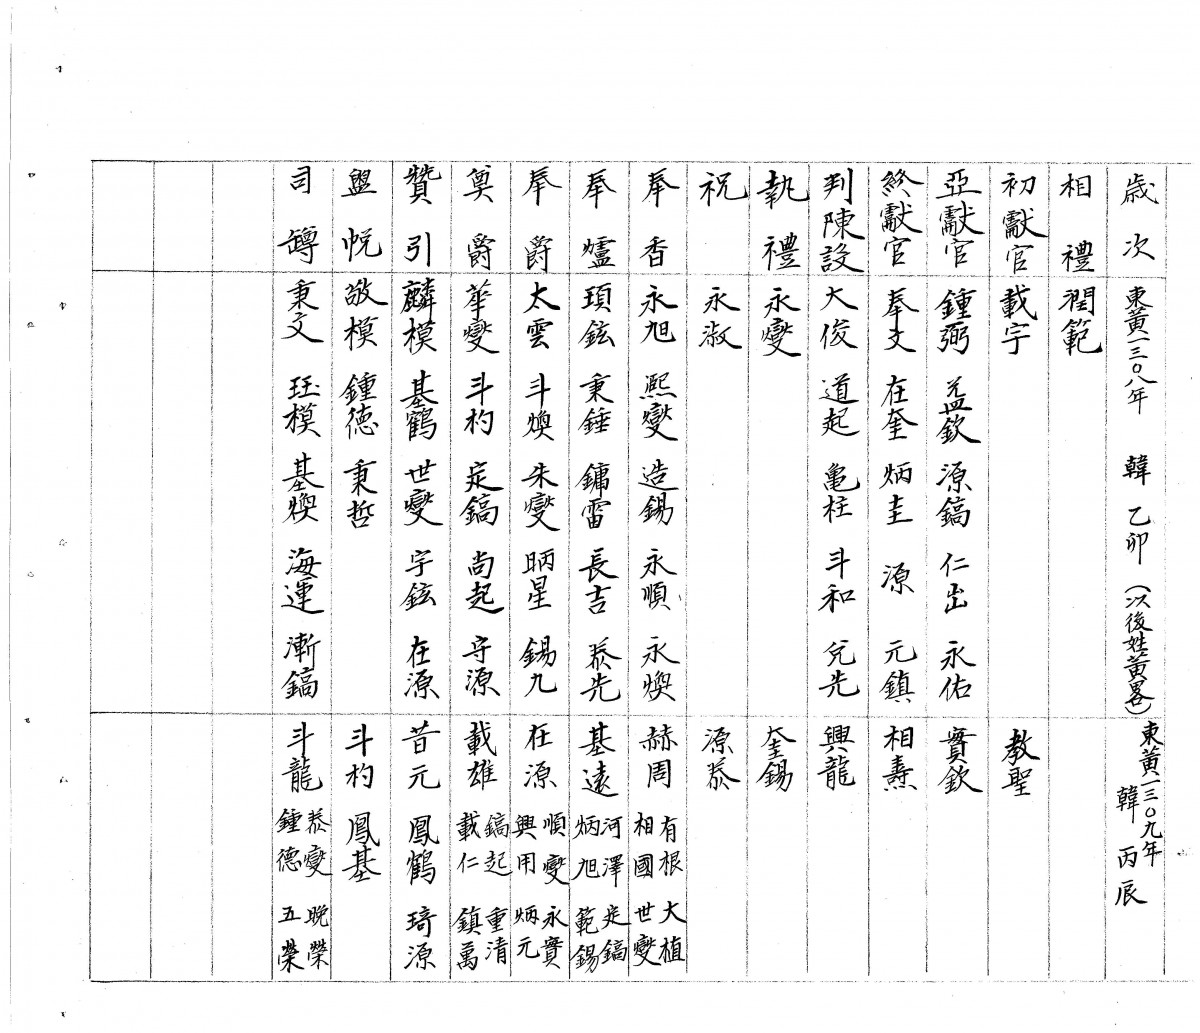 歲次 東黃一三〇八年 韓 乙卯 (次後姓黃畧) 東黃一三〇九年 韓 丙辰
相禮 潤範
初獻官 載宇 敎聖
亞獻官 鍾弼 益欽 源鎬 仁出 永佑 實欽
終獻官 奉文 在奎 炳圭 源 元鎮 相燾
判陳設 大俊 道起 龜柱 斗和 兌先 興龍
執禮 永燮 奎錫
祝 永淑 源泰
奉香 永旭 熙燮 造錫 永順 永煥 赫周 有根 相國 大植 世燮
奉爐 頊鉉 秉鍾 鏞雷 長吉 泰先 基遠 河澤 炳旭 定鎬 範錫
奉爵 太雲 斗煥 朱燮 昞星 錫九 在源 順燮 興用 永實 炳元
奠爵 華燮 斗杓 定鎬 尚起 守源 載雄 鎬起 載仁 重清 鎮萬
贊引 麟模 基鶴 世燮 宇鉉 在源 昔元 鳳鶴 琦源
盥帨 敬模 鍾德 秉哲 斗杓 鳳基
司罇 秉文 珏模 基煥 海運 漸鎬 斗龍 泰燮 鍾德 晚榮 五榮